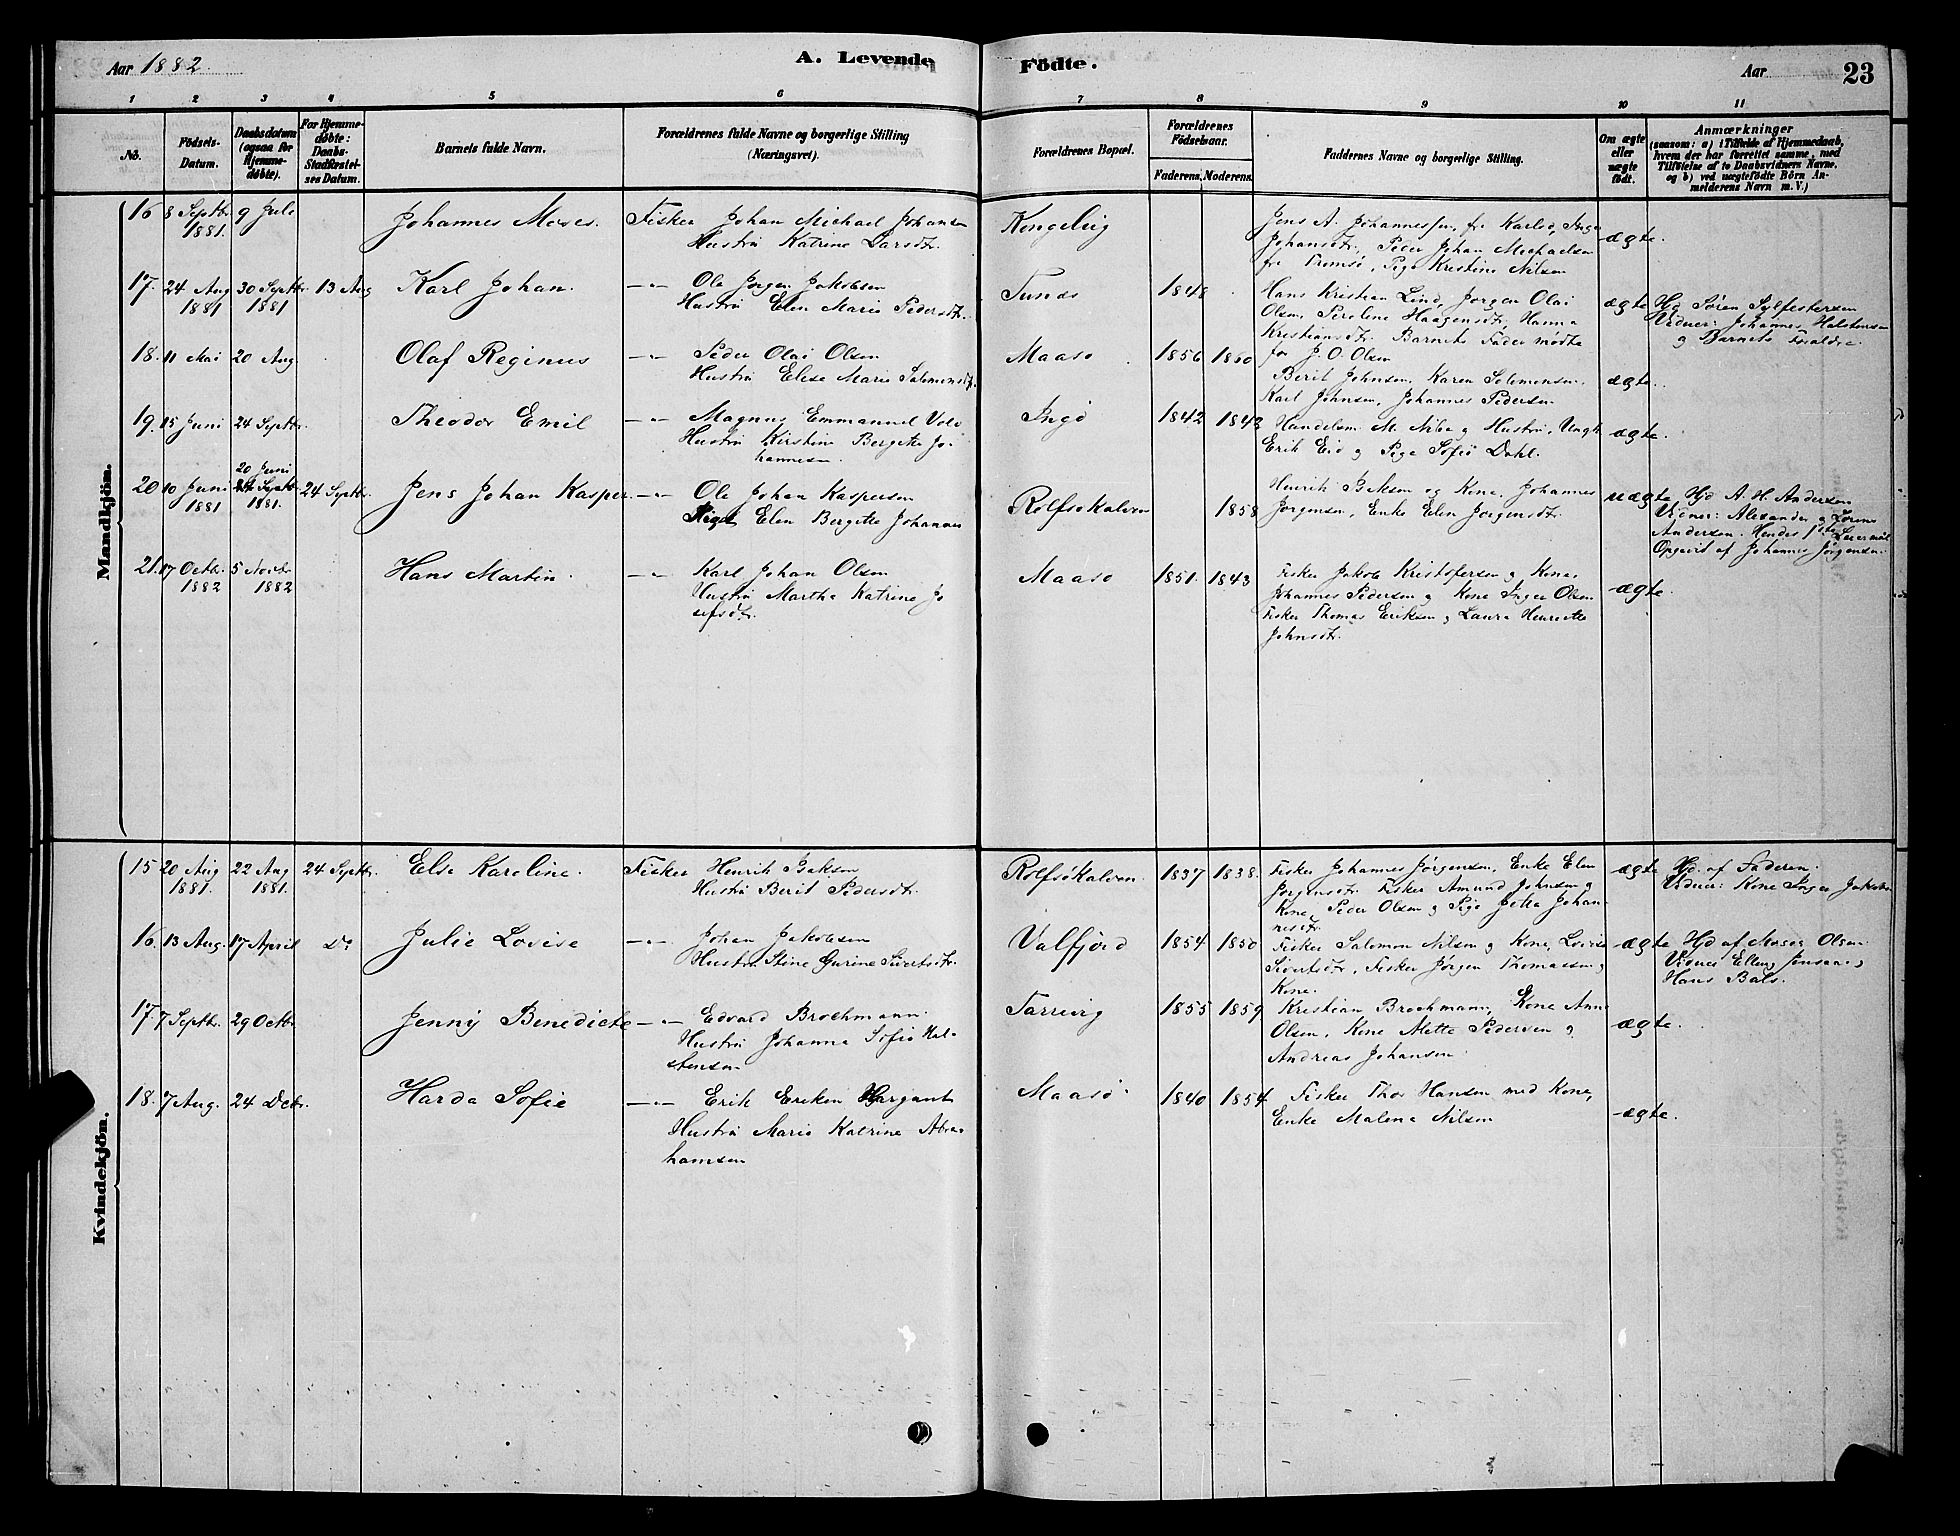 Aar 1882.
A. Levende Födte.
Aar
23
1 2 3 4 5 6 7 8 9 10 11
No.
Födsels-Datum.
Daabsdatum (ogsaa for Hjemmedøbte).
For Hjemmedøbte: Daabs-Stadfæstelses Datum.
Barnets fulde Navn.
Forældrenes fulde Navne og borgerlige Stilling (Næringsvei).
Forældrenes Bopæl.
Forældrenes Födselsaar.
Faderens. Moderens.
Faddernes Navne og borgerlige Stilling.
Om ægte eller uægte födt.
Anmærkninger
(saasom: a) i Tilfælde af Hjemmedaab,
hvem der har forrettet samme, med
Tilföielse af to Daabsvidners Navne,
og b) ved uægtefödte Börn Anmelderens Navn m. V.)
Mandkjön.
16 8 Septbr 1881. 9 Juli
Johannes Moses.
Fisker Johan Michael Johansen
Hustru Katrine Larsdtr.
Kongelvig
Jens A. Johannessen fra Karlsö, Inger
Johansdtr, Peder Johan Michaelsen
fra Tromsö, Pige Kristine Nilsen
ægte.
17 24 Aug 1881 30 Septbr 1881 13 Aug
Karl Johan.
—"— Ole Jørgen Jakobsen
Hustru Elen Marie Pedersdtr.
Tunes
1848
Hans Kristian Lind, Jørgen Olai
Olsen, Peroline Haagensdtr, Hanna
Kristiansdtr. Barnets Fader mødte
for J. O. Olsen
ægte
Hjd Søren Sylfestersen
Vidner: Johannes Halstensen
og Barnets Forældre.
18. 11 Mai 20 Aug.
Olaf Reginus
—"— Peder Olai Olsen
Hustru Elise Marie Salomonsdtr.
Maasø
1856 1860
Berit Johnsen, Karen Salomonsen,
Karl Johnsen, Johannes Pedersen
ægte.
19. 15 Juni 24 Septbr.
Theodor Emil
—"— Magnus Emmanuel
Hustru Kirstine Bergette Johannesen.
Ingø
1842 1843
Handelsm. M. og Hustru, Ungk.
Erik Eid og Pige Sofie Dahl.
ægte.
20 10 Juni 1881 20 Juni 1881. 24 Septbr.
Jens Johan Kasper
—"— Ole Johan Kaspersen
Pige Elen Bergette Johannes
Rolfsøkalven
1858
Henrik Baksen og Kone, Johannes
Jørgensen, Enke Elen Jørgensdtr.
uægte
Hjd A. H. Andersen
Vidner: Alexander og Lorens
Andersen. Hendes 1ste Leiermaal
Opgivet af Johannes Jørgensen.
21. 17 Octbr. 1882 5 Novbr 1882
Hans Martin.
—"— Karl Johan Olsen
Hustru Martha Katrine Josefsdtr.
Maasø
1851. 1843
Fisker Jakob Kristofersen og Kone,
Johannes Pedersen og Kone Inger Olsen
Fisker Thomas Eriksen og Laura Henriette
Johnsdtr.
ægte.
Kvindekjön.
15 20 Aug 1881. 22 Aug 1881. 24 Septbr.
Else Karoline.
Fisker Henrik Baksen
Hustru Berit Pedersdtr.
Rolfsøkalven.
1837 1838.
Fisker Johannes Jørgensen, Enke Elen
Jørgensdtr. Fisker Amund Johnsen og
Kone, Peder Olsen og Pige Petra Johannesdtr.
ægte
Hjd. af Faderen.
Vidner: Kone Inger Jakobsen
16. 13 Aug. 17 April Do
Julie Lovise
—"— Johan Jakobsen
Hustru Stine Gurine Sivertsdtr.
Valfjord
1854. 1850
Fisker Salomon Nilsen og Kone, Lovise
Sivertsdtr, Fisker Jørgen Thomassen og
Kone.
ægte
Hjd af Olsen.
Vidner Elling Jensen og
Hans Bals.
17. 7 Septbr. 29 Octbr.
Jenny Benedicte
—"— Edvard Brochmann.
Hustru Johanna Sofie Halstensen
Tarevig
1855 1859
Kristian Brochmann, Kone Anne
Olsen, Kone Alette Pedersen og
Andreas Johansen
ægte.
18. 7 Aug. 24 Debr.
Harda Sofie
—"— Erik Eriksen
Hustru Marie Katrine Abrahamsen
Maasø
1840 1854
Fisker Thor Hansen med Kone,
Enke Malena Nilsen
ægte.